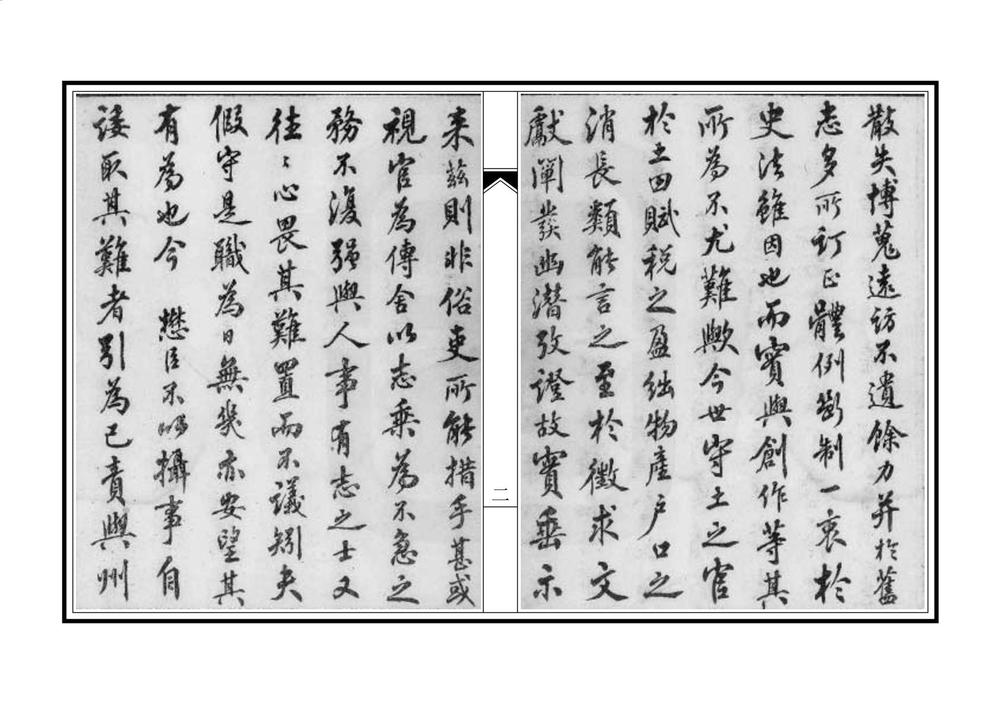 散失博蒐遠訪不遺餘力并於舊
志多所訂正體例斷制一衷於
史法雖因也而實與創作等其
所為不尤難歟今世守土之官
於土田賦税之盈絀物產户口之
消長類能言之至於徵求文
獻闡發幽潛攷證故實垂示
来茲則非俗吏所能措手甚或
視官為傳舍以志乘為不急之
務不復强與人事有志之士又
往〻心畏其難置而不議矧夫
假守是職為日無幾亦安望其
有為也今 懋臣不以攝事自
諉取其難者引為己責與州
二